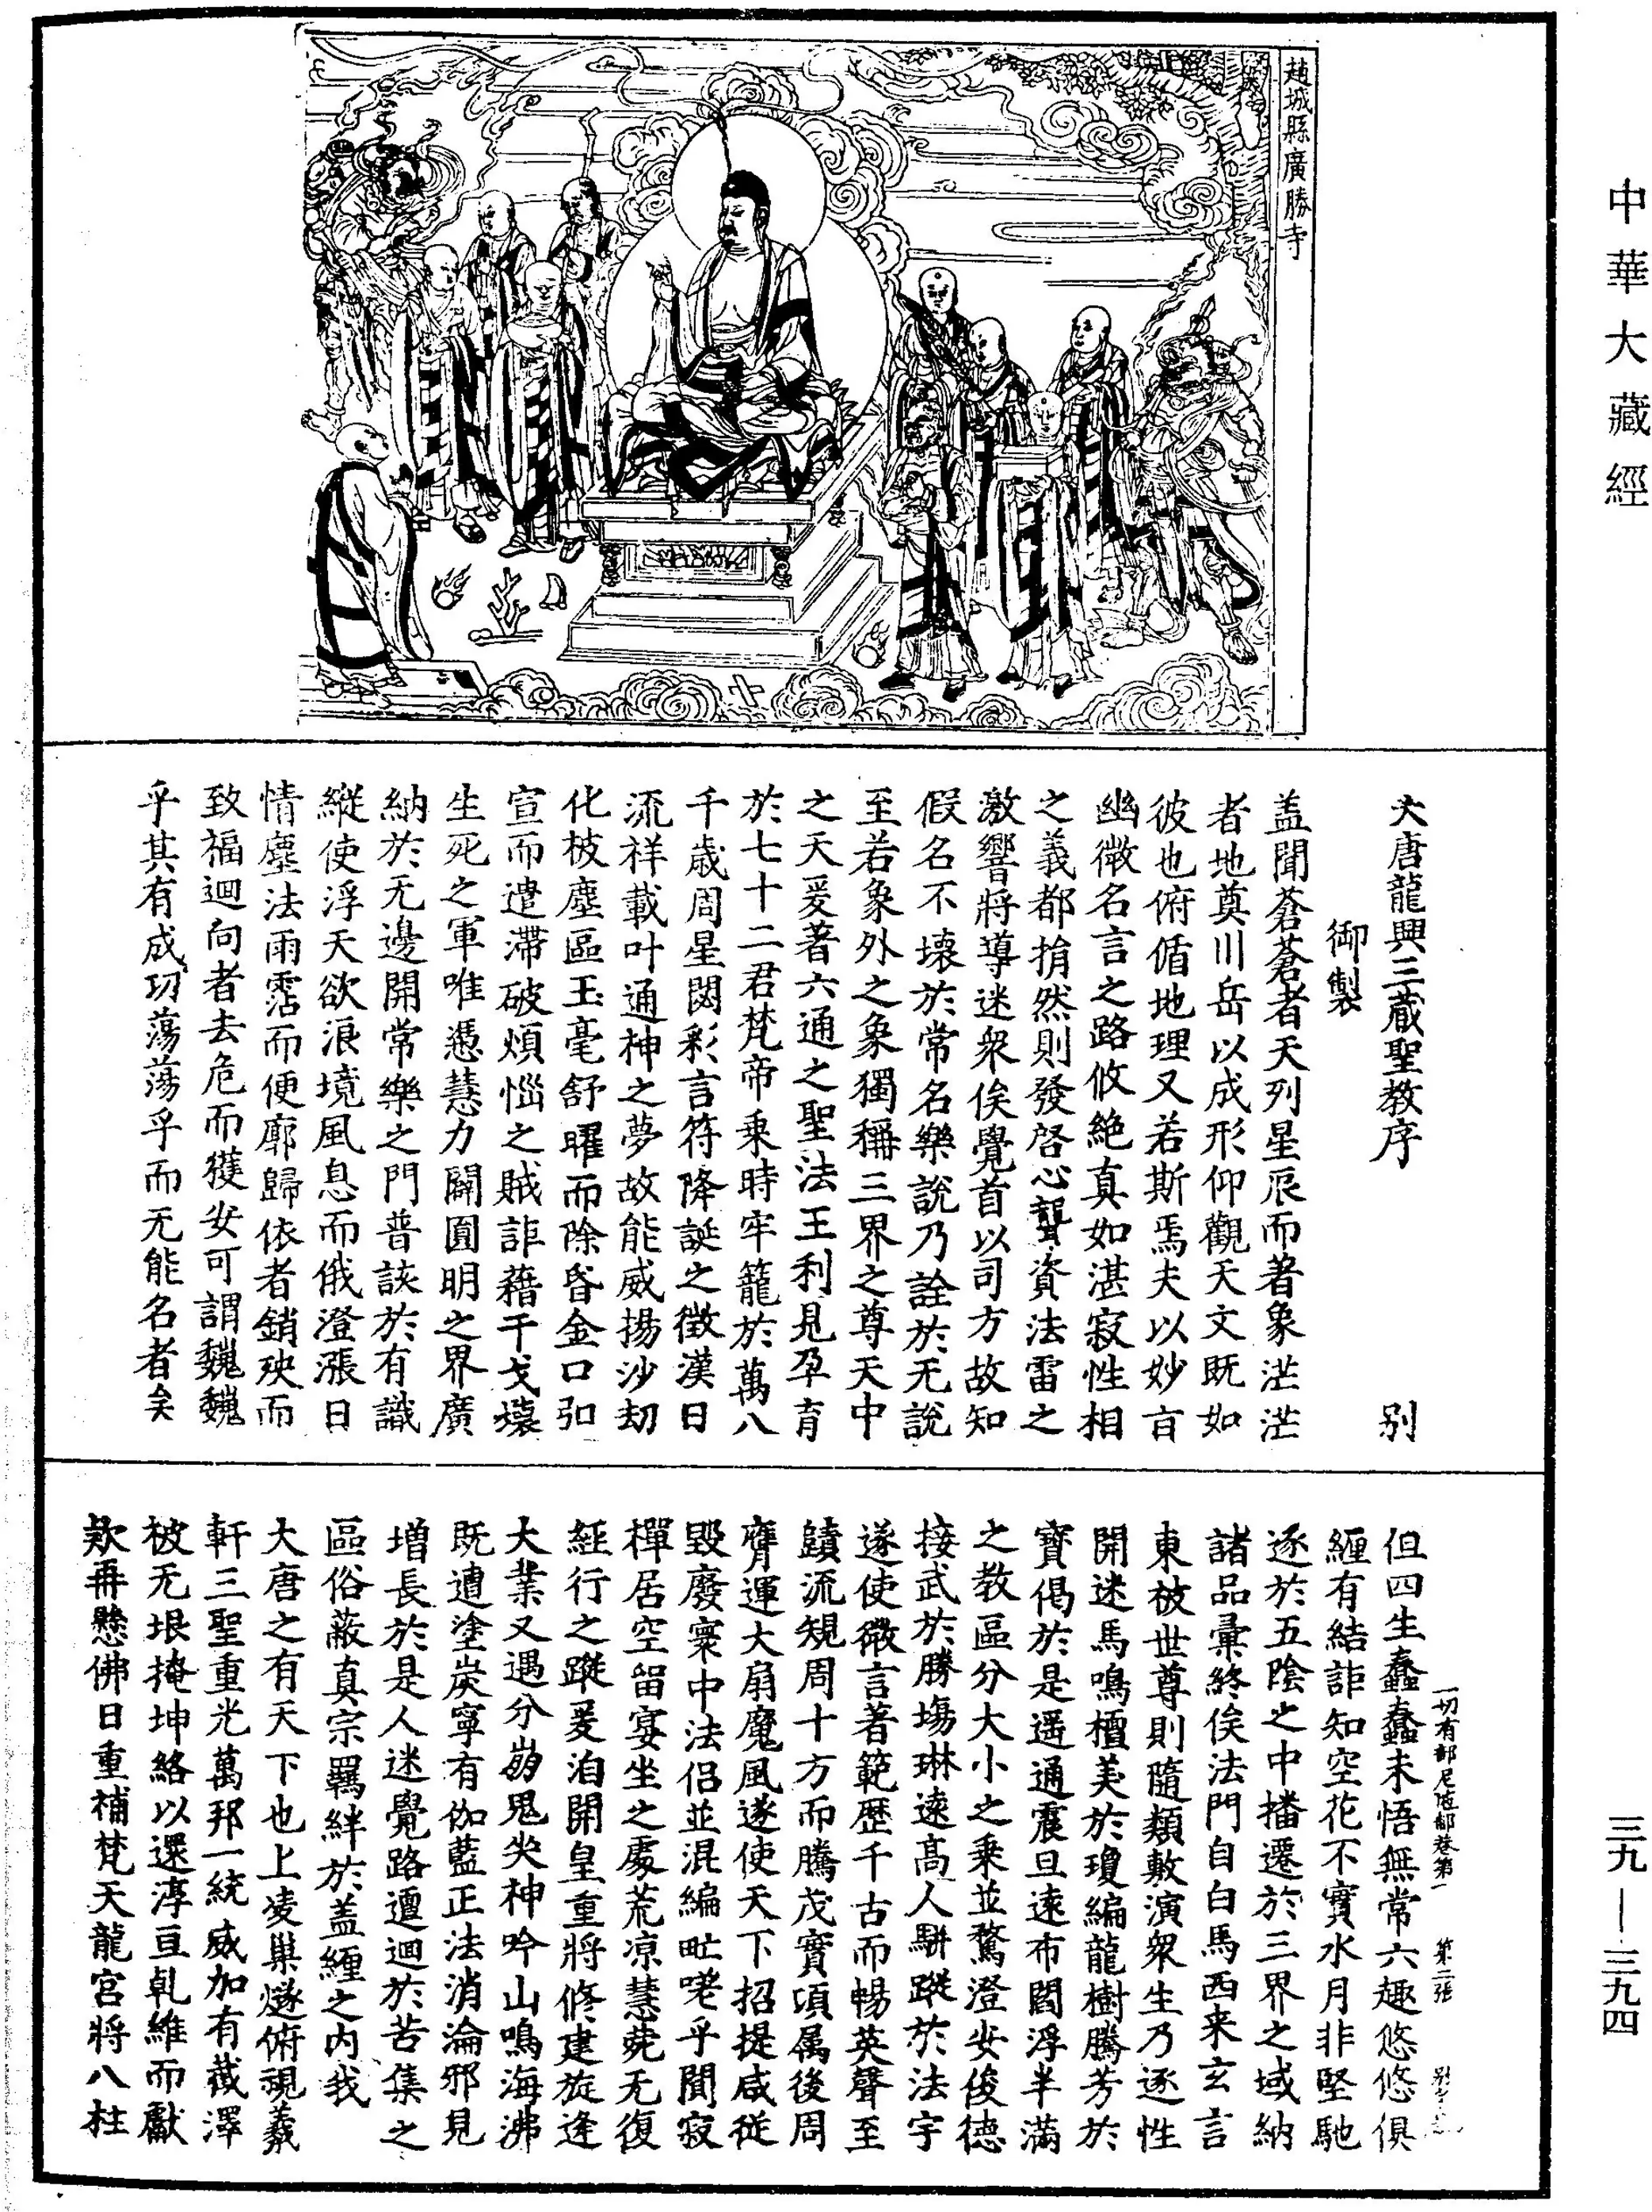 中華大藏經
趙城縣廣勝寺
大唐龍興三藏聖教序 别
御製
盖聞蒼蒼者天列星辰而著象茫茫
者地奠川岳以成形仰觀天文既如
彼也俯循地理又若斯焉夫以妙旨
幽微名言之路攸絶真如湛寂性相
之義都捐然則發啓心聾資法雷之
激響將導迷衆俟覺首以司方故知
假名不壞於常名樂說乃詮於无說
至若象外之象獨稱三界之尊天中
之天爰著六通之聖法王利見孕育
於七十二君梵帝乘時牢籠於萬八
千歲周星閟彩言符降誕之徵漢日
流祥載叶通神之夢故能威揚沙劫
化被塵區玉毫舒曜而除昏金口弘
宣而遣滯破煩惱之賊詎藉干戈壞
生死之軍唯憑慧力闢圓明之界廣
納於无邊開常樂之門普該於有識
縱使浮天欲浪境風息而俄澄漲日
情塵法雨霑而便廓歸依者銷殃而
致福迴向者去危而獲安可謂巍巍
乎其有成功蕩蕩乎而无能名者矣
一切有部尼陁那卷第一 第二張 别
但四生蠢蠢未悟無常六趣悠悠俱
纏有結詎知空花不實水月非堅馳
逐於五陰之中播遷於三界之域納
諸品彙終俟法門自白馬西来玄言
東被世尊則隨類敷演衆生乃逐性
開迷馬鳴檀美於瓊編龍樹騰芳於
寶偈於是遥通震旦遠布閻浮半滿
之教區分大小之乘並騖澄安俊德
接武於勝場琳遠高人駢蹤於法宇
遂使微言著範歷千古而暢英聲至
賾流規周十方而騰茂實項属後周
膺運大扇魔風遂使天下招提咸從
毀廢寰中法侣並混編甿嗟乎閴寂
禪居空留宴坐之處荒凉慧苑无復
經行之蹤爰洎開皇重將修建旋逢
大業又遇分崩鬼哭神吟山鳴海沸
既遭塗炭寧有伽藍正法消淪邪見
增長於是人迷覺路邅迴於苦集之
區俗蔽真宗羈絆於盖纏之内我
大唐之有天下也上凌巢燧俯視羲
軒三聖重光萬邦一統威加有截澤
被无垠掩坤絡以還淳亘乹維而獻
欵再懸佛日重補梵天龍宮將八柱
三九—三九四